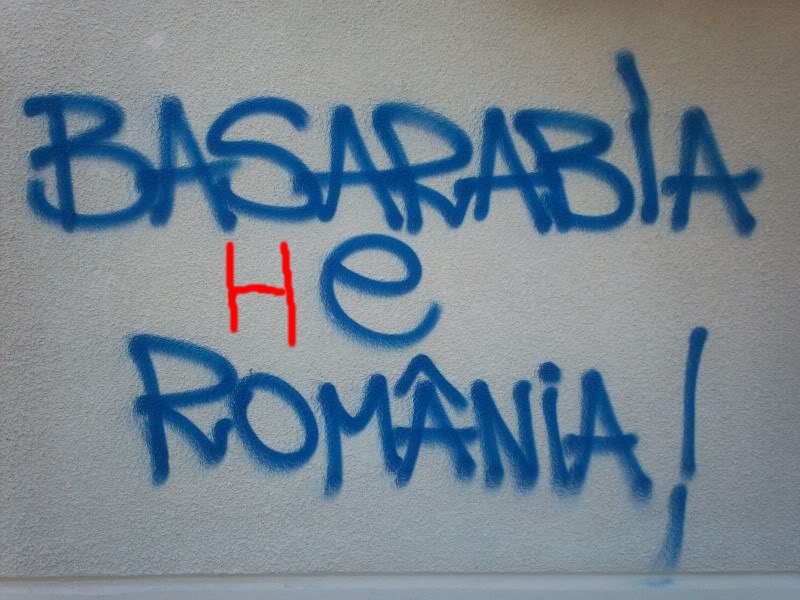 BASARABIA
Не
ROMÂNIA!